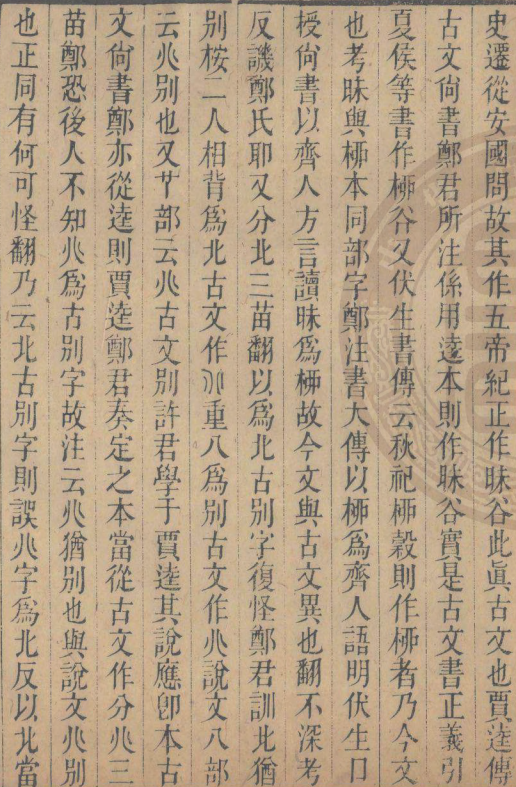 史遷從安國問故其作五帝紀正作昧谷此眞古文也賈逵傳
古文尙書鄭君所注係用逵本則作昧谷實是古文書正義引
夏侯等書作桺谷又伏生書傳云秋祀桺穀則作桺者乃今文
也考昧與桺本同部字鄭注書大傳以桺爲齊人語明伏生口
授尙書以齊人方言讀昧爲桺故今文與古文異也翻不深考
反譏鄭氏耶又分北三苗翻以爲北古別字復怪鄭君訓北猶
別桉二人相背爲北古文作𠔁重八爲別古文作𠔁說文八部
云𠔁別也又𠦒部云𠔁古文別許君學于賈逵其說應卽本古
文尙書鄭亦從逵則賈逵鄭君奏定之本當從古文作分𠔁三
苗鄭恐後人不知𠔁爲古別字故注云𠔁猶別也與說文𠔁別
也正同有何可怪翻乃云北古別字則誤𠔁字爲北反以北當